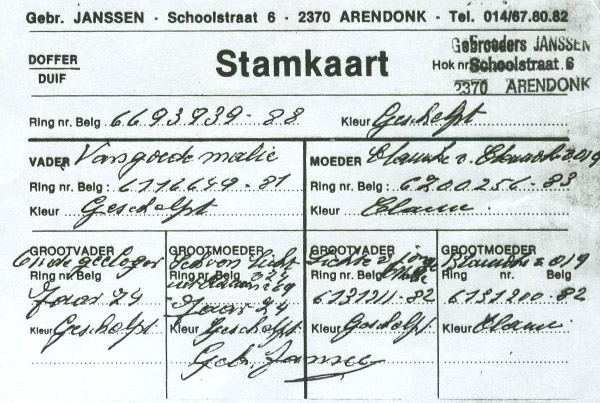 Gebr. JANSSEN - Schoolstraat 6 - 2370 ARENDONK - Tel. 014/67.80.82
DOFFER
DUIF
Stamkaart
Gebroeders JANSSEN
Hok nr Schoolstraat 6
2370 ARENDONK
Ring nr. Belg 6693939-88 Kleur Geschelpt
VADER Vangoede malie
Ring nr. Belg : 6716649-81
Kleur Geschelpt
MOEDER 019
Ring nr. Belg : 6700256-83
Kleur Blauw
GROOTVADER
Oude geeloger
Ring nr. Belg
Jaar 74
Kleur Geschelpt
GROOTMOEDER
Schoon licht
Ring nr. Belg
Jaar 74
Kleur Geschelpt
GROOTVADER
Lichte v jonge
Ring nr. Belg
6131211-82
Kleur Geschelpt
GROOTMOEDER
019
Ring nr. Belg
6131200-82
Kleur Blauw
Gebr. Janssen